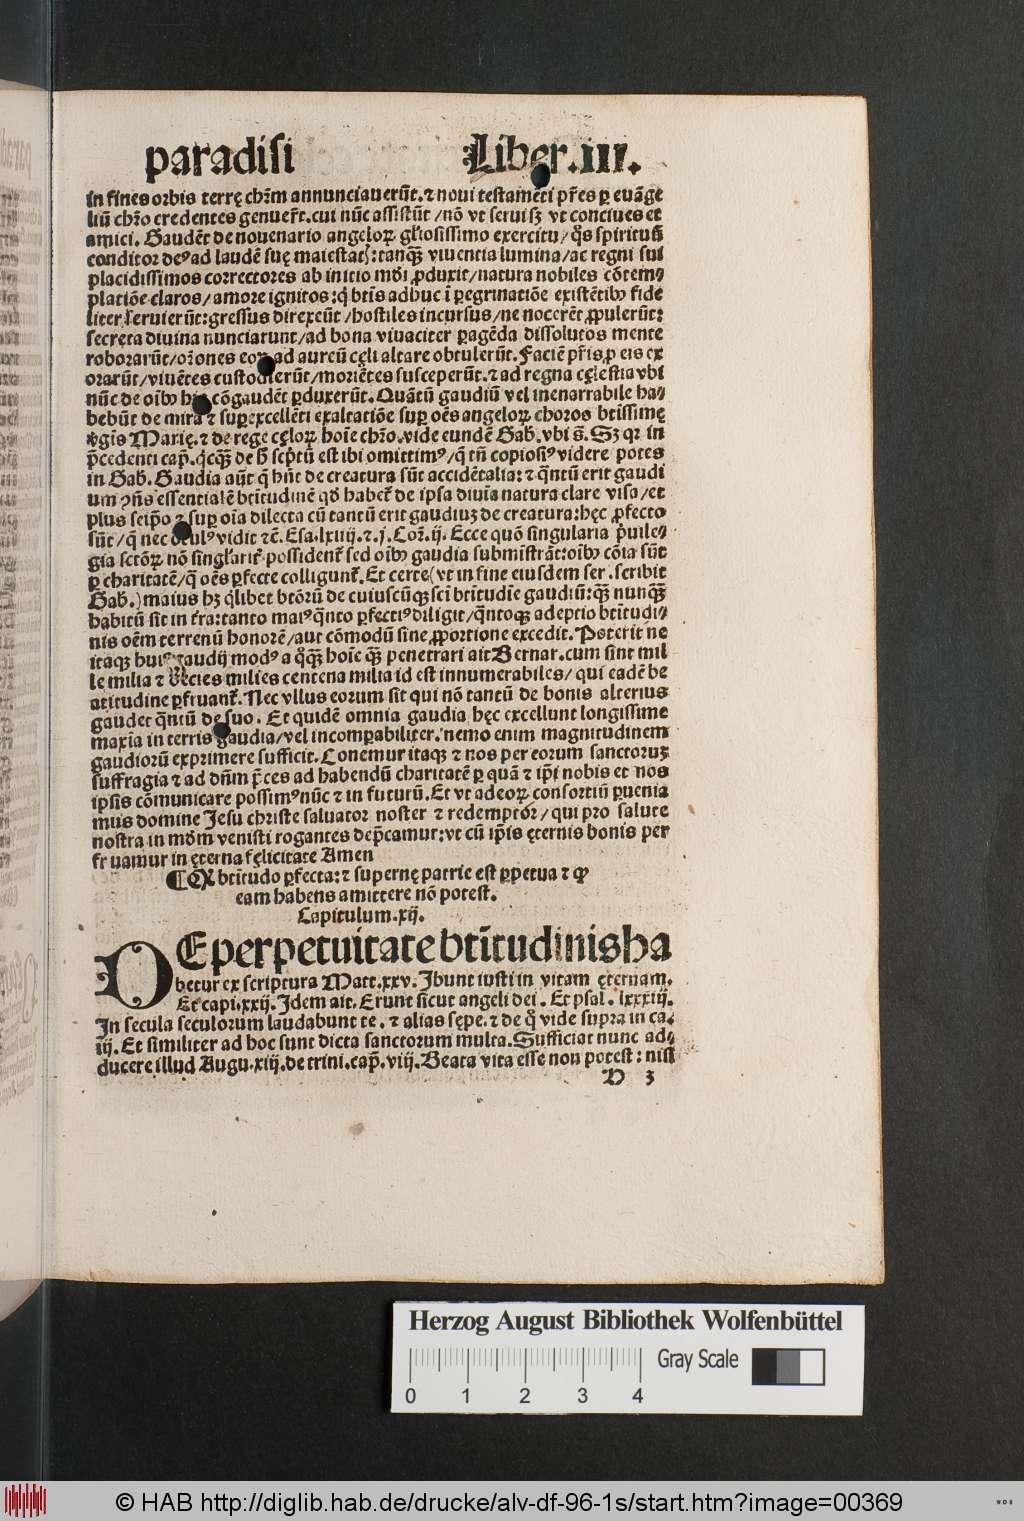 paradisi Liber.III.
in fines orbis terrę chr̄m annunciauerūt.⁊ noui testamēti pr̄es ꝑ euāge
liū chr̄o credentes genuer̄t.cui nūc assistūt/nō vt serui sꝫ vt conciues et
amici. Gaudēt de nouenario angeloꝝ gl̄iosissimo exercitu/ q̄s spiritus
conditor deꝰ ad laudē suę maiestat̄:tanqꝫ viuentia lumina/ac regni sui
placidissimos correctores ab initio mōi ꝓduxit/natura nobiles cōtem⸗
platiōe claros/amore ignitos:q̇ btīs adhuc ī ꝑegrinatiōe existētibꝰ fide
liter seruierūt:gressus direxeūt/hostiles incursus/ne nocerēt ꝓpulerūt:
secreta diuina nunciarunt/ad bona viuaciter ꝑagēda dissolutos mente
roborarūt/or̄ones eoꝝ ad aureū cęli altare obtulerūt. Faciē pr̄is ꝓ eis ex
orarūt/viuētes custodierūt/moriētes susceperūt.⁊ ad regna cęlestia vbi
nūc de oībꝰ his cōgaudēt ꝑduxerūt. Quātū gaudiū vel inenarrabile ha⸗
bebūt de mira ⁊ suꝑexcellēti exaltatiōe suꝑ oēs angeloꝝ choros btissimę
v̄gīs Marię.⁊ de rege cęloꝝ hoīe chr̄o.vide eundē Gab. vbi s̄. Sꝫ qꝛ in
p̄cedenti cap̄. q̇cqꝫ de h̄ scp̄tū est ibi omittimꝰ/q̄ tn̄ copiosiꝰ videre potes
in Gab. Gaudia aūt q̄ hn̄t de creatura sūt accidētalia:⁊ q̄ntū erit gaudi
um ꝯn̄s essentialē btītudinē qd̄ habet̄ de ipsa diuīa natura clare visa/et
plus seip̄o ⁊ suꝑ oīa dilecta cū tantū erit gaudiuꝫ de creatura:hęc ꝓfecto
sūt/q̄ nec oculꝰ vidit ⁊c̄. Esa.lxiiij.⁊.j.Cor̄.ij. Ecce quō singularia p̄uile⸗
gia sctōꝝ nō singl̄arit̄ possident̄ sed oībꝰ gaudia submīstrāt:oībꝰ cōia sūt
ꝑ charitatē/q̄ oēs ꝑfecte colligunt̄. Et certe(vt in fine eiusdem ser.scribit
Gab.)maius hꝫ q̄libet btōrū de cuiuscūqꝫ scī btītudīe gaudiū:qꝫ nunqꝫ
habitū sit in t̄ra:tanto maiꝰ q̄nto ꝑfectiꝰ diligit/q̄ntoqꝫ adeptio btītudi⸗
nis oēm terrenū honorē/aut cōmodū sine ꝓportione excedit. Poterit ne
itaqꝫ huiꝰ gaudij modꝰ a q̄qꝫ hoīe qꝫ penetrari ait Bernar.cum sint mil
le milia ⁊ decies milies centena milia id est innumerabiles/qui eadē be
atitudine ꝑfruant̄. Nec vllus eorum sit qui nō tantū de bonis alterius
gaudet q̄ntū de suo. Et quidē omnia gaudia hęc excellunt longissime
maxīa in terris gaudia/vel incomꝑabiliter.nemo enim magnitudinem
gaudiorū exprimere sufficit. Conemur itaqꝫ ⁊ nos per eorum sanctoruꝫ
suffragia ⁊ ad dn̄m p̄ces ad habendū charitatē ꝑ quā ⁊ ip̄i nobis et nos
ipsis cōmunicare possimꝰ nūc ⁊ in futurū. Et vt ad eoꝝ consortiū ꝑuenia
mus domine Jesu christe saluator noster ⁊ redemptor/ qui pro salute
nostra in mōm venisti rogantes dep̄camur:vt cū ip̄is ęternis bonis per
fruamur in ęterna fęlicitate Amen
¶ Qꝫ btītudo ꝑfecta:⁊ supernę patrie est ꝑpetua ⁊ qꝫ
eam habens amittere nō potest.
Capitulum.xij.
DE perpetuitate btītudinis ha
betur ex scriptura Matt.xxv. Jbunt iusti in vitam ęternam.
Et capi.xxij. Jdem ait. Erunt sicut angeli dei. Et psal.lxxxiij.
In secula seculorum laudabunt te. ⁊ alias sępe.⁊ de q̄ vide supra in ca.
iij. Et similiter ad hoc sunt dicta sanctorum multa. Sufficiat nunc ad⸗
ducere illud Augu.xiij.de trini.cap̄.viij. Beata vita esse non potest: nisi
D 3
Herzog August Bibliothek Wolfenbüttel
0 1 2 3 4 Gray Scale
© HAB http://diglib.hab.de/drucke/alv-df-96-1s/start.htm?image=00369